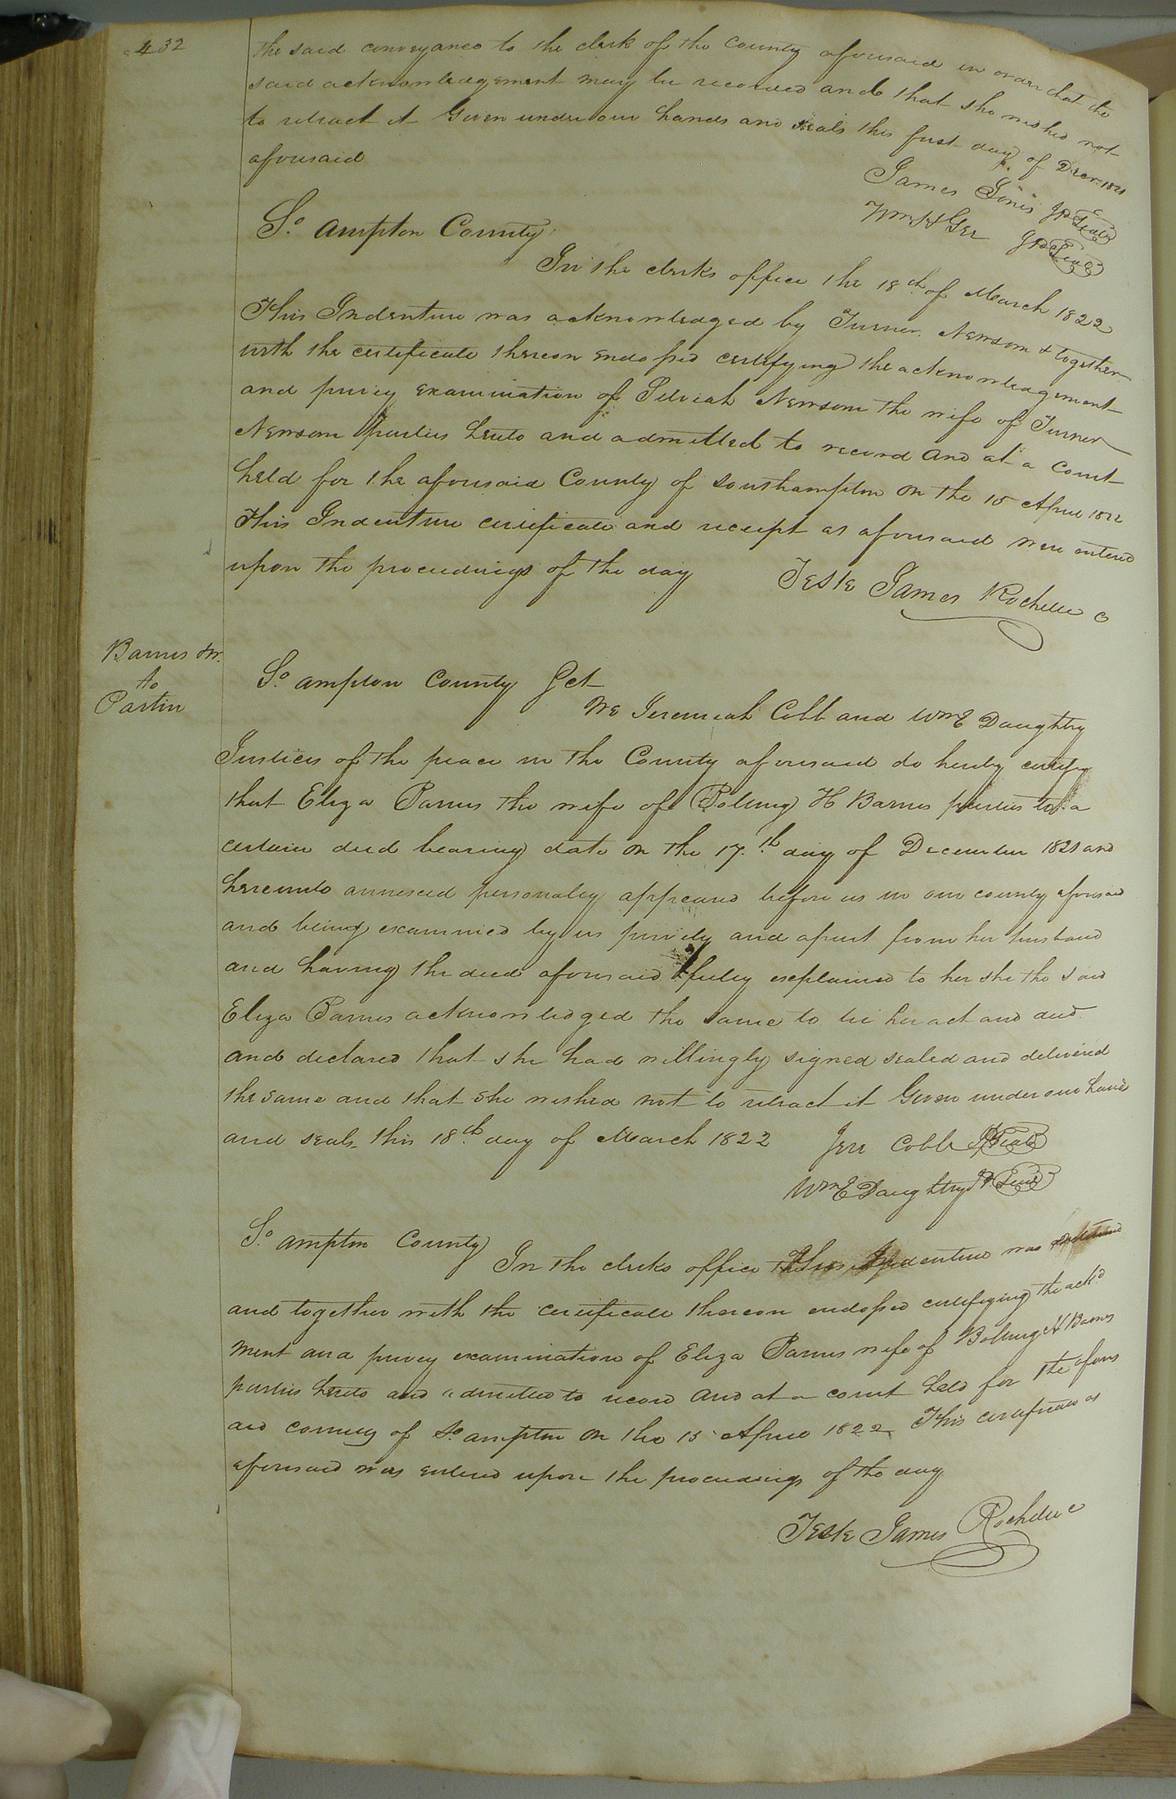 432
the said conveyance to the clerk of the County aforesaid in order that the
said acknowledgement may be recorded and that she wishes not
to retract it Given under our hands and seals this first day of Decr. 1821
aforesaid
James Jones JP Seal
Wm H Gee JP Seal
So. ampton County
In the clerks office the 18th of March 1822
This Indenture was acknowledged by Turner Newsom & together
with the certificate thereon endorsed certifying the acknowledgement
and privey examination of Selviah Newsom the wife of Turner
Newsom parties hereto and admitted to record and at a Court
held for the aforesaid County of Southampton on the 15 April 1822
This Indenture certificate and receipt as aforesaid were entered
upon the proceedings of the day
Teste James Rochelle C
Barnes &
to
Partin
So. ampton County Sct
We Jeremiah Cobb and Wm E Daughtry
Justices of the peace in the County aforesaid do hereby certify
that Eliza Barnes the wife of Boling H Barnes parties to a
certain deed bearing date on the 17.th day of December 1821 and
hereunto annexed personaley appeared before us in our county aforesaid
and being examined by us privily and apart from her husband
and having the deed aforesaid fuley explained to her she the said
Eliza Barnes acknowledged the same to be her act and deed
and declared that she had willingly signed sealed and delivered
the same and that she wished not to retract it Given under our hands
and seals this 18th day of March 1822
Jere Cobb JP Seal
Wm E Daughtry JP Seal
So. ampton County
In the clerks office This Indenture was
and together with the certificate thereon endorsed certifying the ackd
ment and privey examination of Eliza Barnes wife of Boling H Barnes
parties hereto and admitted to record and at a court held for the afores
aid county of So. ampton on the 15 April 1822 This certificate as
aforesaid was entered upon the proceedings of the day
Teste James Rochelle C